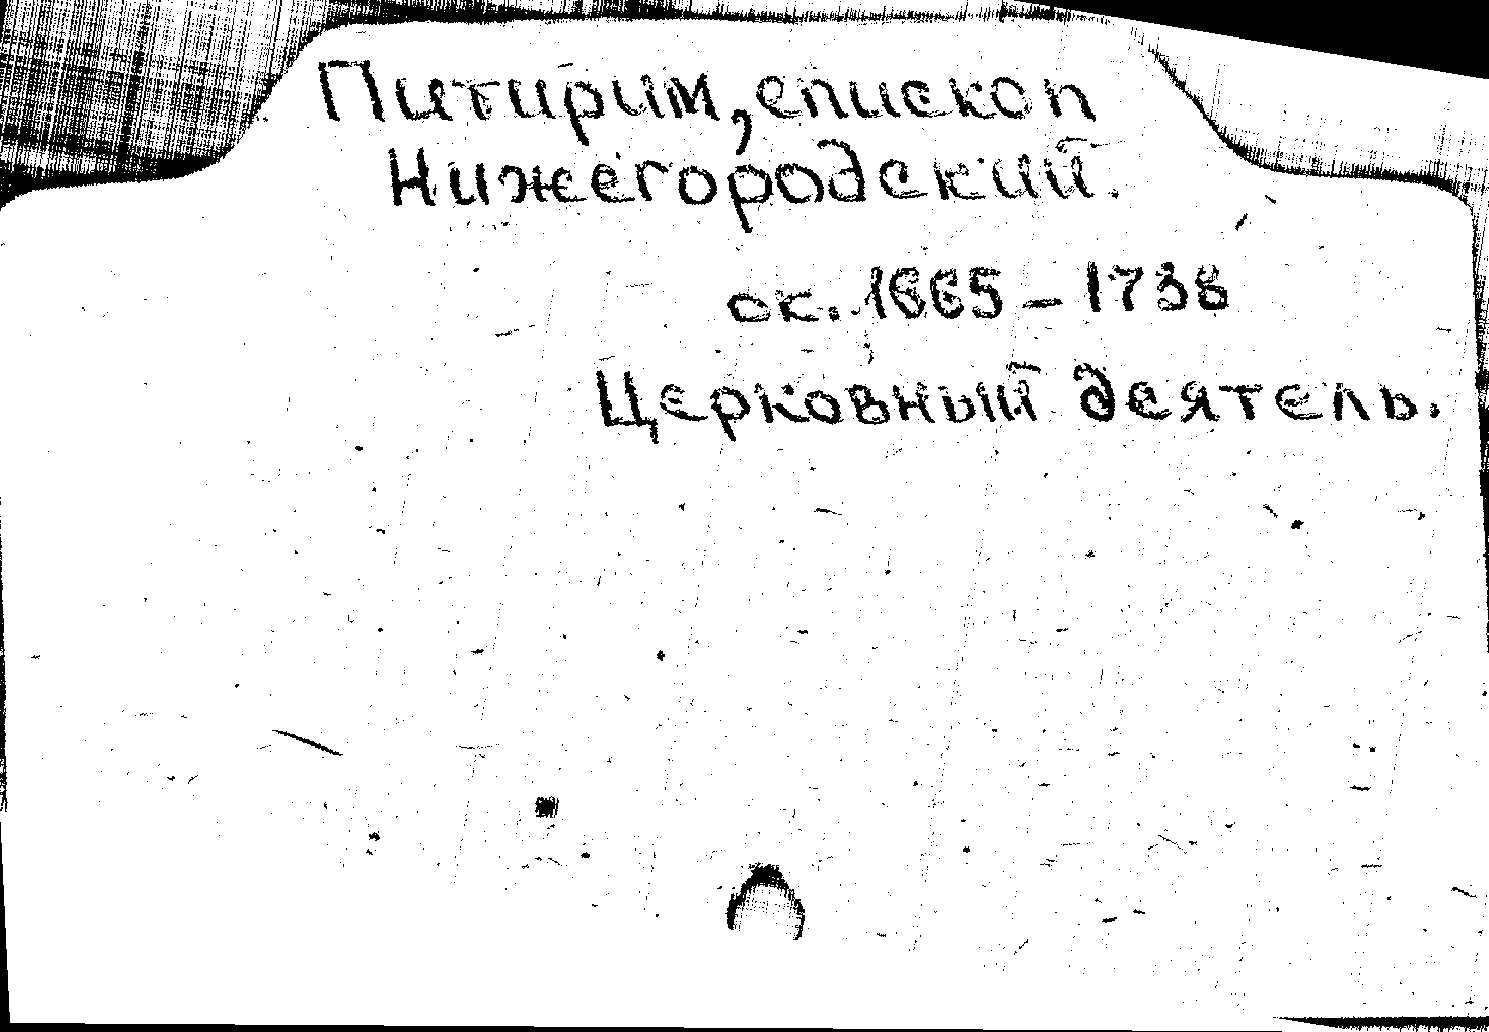 Питирим, епископ
Нижегородский.
ок. 1665 – 1738
Церковный деятель.